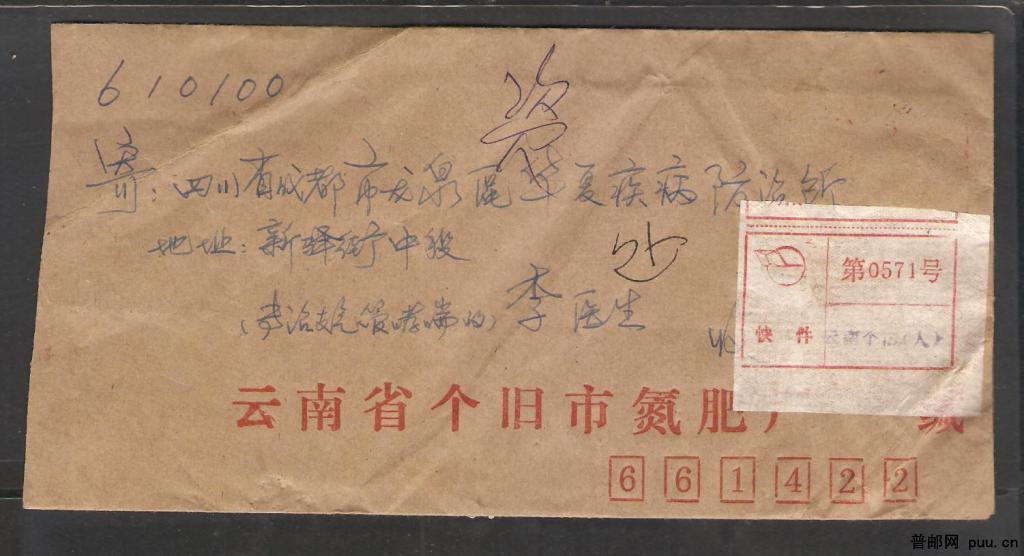 610100
寄：四川省成都市龙泉区华夏疾病防治所
地址：新驿街中段
（专治支气管哮喘的）李医生 收
第0571号
快件 云南个旧（人）
云南省个旧市氮肥厂 缄
661422
普邮网 puu.cn